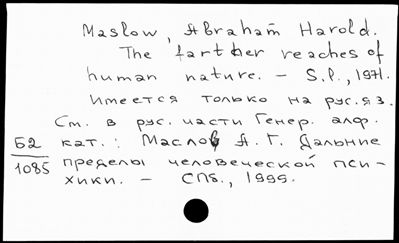 Maslow, Abraham Harold.
The farther reaches of
human nature. - S.l., 1971.
Имеется только на рус.яз.
См. в рус. части Генер. алф.
Б2 кат.: Маслов А. Г. Дальние
1085 пределы человеческой пси-
хики. - СПб., 1999.